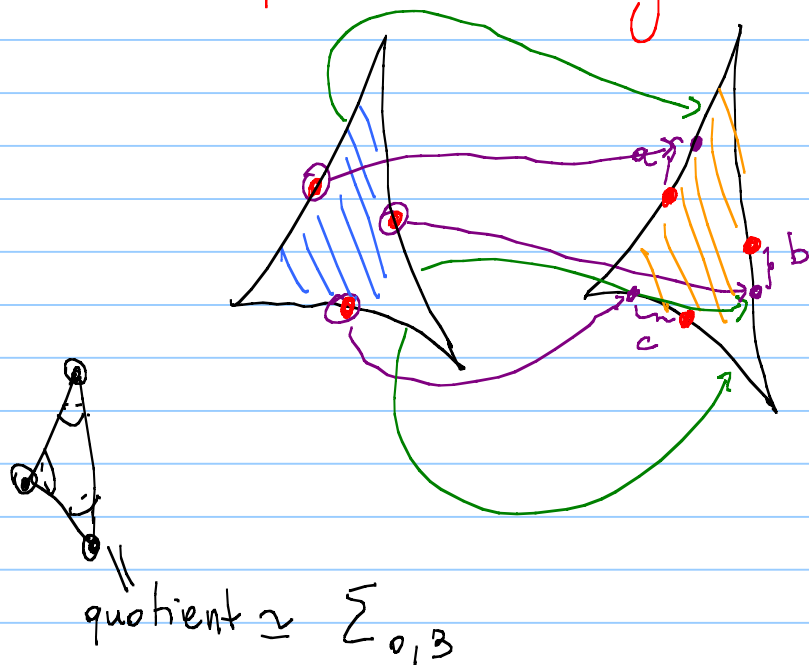 a
b
c
quotient ≃ Σ₀,₃